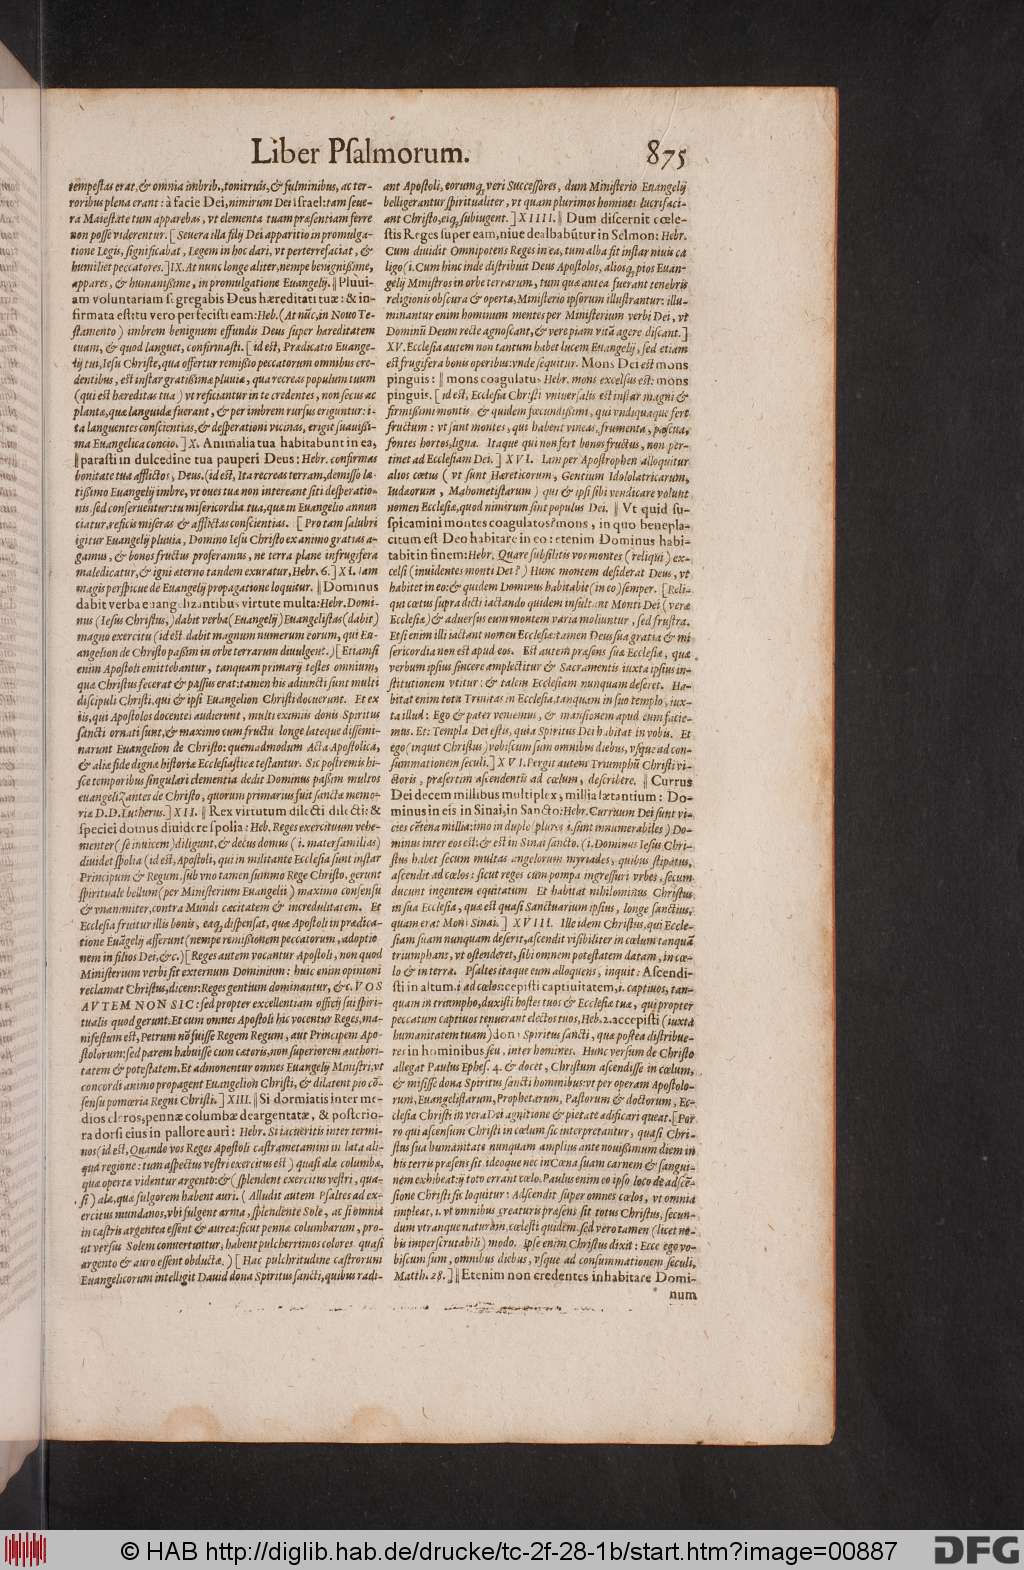 Liber Psalmorum. 875
tempestas erat, & omnia imbrib., tonitruis, & fulminibus, ac ter-
roribus plena erant: à facie Dei, nimirum Dei Israel: tam seue-
ra Maiestate tum apparebas, vt elementa tuam præsentiam ferre
non posse viderentur. [ Seuera illa filij Dei apparitio in promulga-
tione Legis, significabat, Legem in hoc dari, vt perterrefaciat, &
humiliet peccatores. ] IX. At nunc longe aliter, nempe benignissime,
appares, & humanissime, in promulgatione Euangelij. || Pluui-
am voluntariam segregabis Deus hæreditati tuæ: & in-
firmata est: tu vero perfecisti eam: Heb. (At nũc, in Nouo Te-
stamento) imbrem benignum effundis Deus super hæreditatem
tuam, & quod languet, confirmasti. [ id est, Prædicatio Euange-
lij tui, Iesu Christe, qua offertur remissio peccatorum omnibus cre-
dentibus, est instar gratissimæ pluuiæ, qua recreas populum tuum
(qui est hæreditas tua) vt reficiantur in te credentes, non secus ac
plantæ, quæ languidæ fuerant, & per imbrem rursus eriguntur: i-
ta languentes conscientias, & desperationi vicinas, erigit suauissi-
ma Euangelica concio. ] X. Animalia tua habitabunt in ea,
|| parasti in dulcedine tua pauperi Deus: Hebr. confirmas
bonitate tua afflictos, Deus. (id est, Ita recreas terram, demisso læ-
tissimo Euangelij imbre, vt oues tuæ non intereant siti desperatio-
nis, sed conseruentur: tu misericordia tua, quæ in Euangelio annun
ciatur, reficis miseras & afflictas conscientias. [ Pro tam salubri
igitur Euangelij pluuia, Domino Iesu Christo ex animo gratias a-
gamus, & bonos fructus proferamus, ne terra plane infrugifera
maledicatur, & igni æterno tandem exuratur, Hebr. 6. ] XI. Iam
magis perspicue de Euangelij propagatione loquitur. || Dominus
dabit verba euangelizantibus virtute multa: Hebr. Domi-
nus (Iesus Christus,) dabit verba (Euangelij) Euangelistas (dabit)
magno exercitu (id est dabit magnum numerum eorum, qui Eu-
angelion de Christo passim in orbe terrarum diuulgent.) [ Etiamsi
enim Apostoli emittebantur, tanquam primarij testes omnium,
quæ Christus fecerat & passus erat: tamen his adiuncti sunt multi
discipuli Christi, qui & ipsi Euangelion Christi docuerunt. Et ex
iis, qui Apostolos docentes audierunt, multi eximiis donis Spiritus
sancti ornati sunt, & maximo cum fructu longe lateque dissemi-
narunt Euangelion de Christo: quemadmodum Acta Apostolica,
& aliæ fide dignæ historiæ Ecclesiasticæ testantur. Sic postremis hi-
sce temporibus singulari clementia dedit Dominus passim multos
euangelizantes de Christo, quorum primarius fuit sanctæ memo-
riæ D. D. Lutherus. ] XII. || Rex virtutum dilecti dilecti: &
speciei domus diuidere spolia: Heb. Reges exercituum vehe-
menter (se inuicem) diligunt, & decus domus ( i. mater familias)
diuidet spolia (id est, Apostoli, qui in militante Ecclesia sunt instar
Principum & Regum, sub vno tamen summo Rege Christo, gerunt
spirituale bellum (per Ministerium Euangelii) maximo consensu
& vnanimiter, contra Mundi cæcitatem & incredulitatem. Et
Ecclesia fruitur illis bonis, eaq; dispensat, quæ Apostoli in prædica-
tione Euãgelij afferunt (nempe remissionem peccatorum, adoptio
nem in filios Dei, &c.) [ Reges autem vocantur Apostoli, non quod
Ministerium verbi sit externum Dominium: huic enim opinioni
reclamat Christus, dicens: Reges gentium dominantur, &c. VOS
AVTEM NON SIC: sed propter excellentiam officij sui spiri-
tualis quod gerunt. Et cum omnes Apostoli hic vocentur Reges, ma-
nifestum est, Petrum nõ fuisse Regem Regum, aut Principem Apo-
stolorum: sed parem habuisse cum cæteris, non superiorem authori-
tatem & potestatem. Et admonentur omnes Euangelij Ministri, vt
concordi animo propagent Euangelion Christi, & dilatent pio cõ-
sensu pomœria Regni Christi. ] XIII. || Si dormiatis inter me-
dios cleros, pennæ columbæ deargentatæ, & posterio-
ra dorsi eius in pallore auri: Hebr. Si iacueritis inter termi-
nos (id est, Quando vos Reges Apostoli castrametamini in lata ali-
qua regione: tum aspectus vestri exercitus est) quasi alæ columbæ,
quæ opertæ videntur argento: & (splendent exercitus vestri, qua-
si) alæ, quæ fulgorem habent auri. ( Alludit autem Psaltes ad ex-
ercitus mundanos, vbi fulgent arma, splendente Sole, ac si omnia
in castris argentea essent & aurea: sicut pennæ columbarum, pro-
ut versus Solem conuertuntur, habent pulcherrimos colores quasi
argento & auro essent obductæ. ) [ Hac pulchritudine castrorum
Euangelicorum intelligit Dauid dona Spiritus sancti, quibus radi-
ant Apostoli, eorumq; veri Successores, dum Ministerio Euangelij
belligerantur spiritualiter, vt quam plurimos homines lucrifaci-
ant Christo, eiq; subiugent. ] XIIII. || Dum discernit cœle-
stis Reges super eam, niue dealbabũtur in Selmon: Hebr.
Cum diuidit Omnipotens Reges in ea, tum alba sit instar niuis ca
ligo (i. Cum hinc inde distribuit Deus Apostolos, aliosq; pios Euan-
gelij Ministros in orbe terrarum, tum quæ antea fuerant tenebris
religionis obscura & operta, Ministerio ipsorum illustrantur: illu-
minantur enim hominum mentes per Ministerium verbi Dei, vt
Dominũ Deum recte agnoscant, & vere piam vitã agere discant. ]
XV. Ecclesia autem non tantum habet lucem Euangelij, sed etiam
est frugifera bonis operibus: vnde sequitur. Mons Dei est mons
pinguis: || mons coagulatus Hebr. mons excelsus est: mons
pinguis. [ id est, Ecclesia Christi vniuersalis est instar magni &
firmissimi montis & quidem fœcundissimi, qui vndiquaque fert
fructum: vt sunt montes, qui habent vineas, frumenta, pascua,
fontes hortos, ligna. Itaque qui non fert bonos fructus, non per-
tinet ad Ecclesiam Dei. ] XVI. Iam per Apostrophen alloquitur
alios cœtus ( vt sunt Hæreticorum, Gentium Idololatricarum,
Iudæorum, Mahometistarum) qui & ipsi sibi vendicare volunt
nomen Ecclesiæ, quod nimirum sint populus Dei. || Vt quid su-
spicamini montes coagulatos? mons, in quo benepla-
citum est Deo habitare in eo: etenim Dominus habi-
tabit in finem: Hebr. Quare subsilitis vos montes (reliqui) ex-
celsi (inuidentes monti Dei?) Hunc montem desiderat Deus, vt
habitet in eo: & quidem Dominus habitabit (in eo) semper. [Reli-
qui cœtus supra dicti iactando quidem insultant Monti Dei (veræ
Ecclesiæ) & aduersus eum montem varia moliuntur, sed frustra.
Etsi enim illi iactant nomen Ecclesiæ: tamen Deus sua gratia & mi
sericordia non est apud eos. Est autem præsens suæ Ecclesiæ, quæ
verbum ipsius sincere amplectitur & Sacramentis iuxta ipsius in-
stitutionem vtitur: & talem Ecclesiam nunquam deseret. Ha-
bitat enim tota Trinitas in Ecclesia, tanquam in suo templo, iux-
ta illud: Ego & pater veniemus, & mansionem apud eum facie-
mus. Et: Templa Dei estis, quia Spiritus Dei habitat in vobis. Et
ego (inquit Christus) vobiscum sum omnibus diebus, vsque ad con-
summationem seculi. ] XVI. Pergit autem Triumphũ Christi vi-
ctoris, præsertim ascendentis ad cœlum, describere. || Currus
Dei decem millibus multiplex, millia lætantium: Do-
minus in eis in Sinai, in Sancto: Hebr. Curruum Dei sunt vi-
cies cẽtena millia: imo in duplo (plures i. sunt innumerabiles) Do-
minus inter eos est: & est in Sinai sancto. (i. Dominus Iesus Chri-
stus habet secum multas angelorum myriades, quibus stipatus,
ascendit ad cœlos: sicut reges cum pompa ingressuri vrbes, secum
ducunt ingentem equitatum Et habitat nihilominus Christus
in sua Ecclesia, quæ est quasi Sanctuarium ipsius, longe sanctius,
quam erat Mons Sinai. ] XVIII. Ille idem Christus, qui Eccle-
siam suam nunquam deserit, ascendit visibiliter in cœlum tanquã
triumphans, vt ostenderet, sibi omnem potestatem datam, in cœ-
lo & in terra. Psaltes itaque eum alloquens, inquit: Ascendi-
sti in altum. i ad cœlos: cepisti captiuitatem, i. captiuos, tan-
quam in triumpho, duxisti hostes tuos & Ecclesiæ tuæ, qui propter
peccatum captiuos tenuerant electos tuos, Heb. 2. accepisti (iuxta
humanitatem tuam) dona Spiritus sancti, quæ postea distribue-
res in hominibus seu, inter homines. Hunc versum de Christo
allegat Paulus Ephes. 4. & docet, Christum ascendisse in cœlum,
& misisse dona Spiritus sancti hominibus: vt per operam Apostolo-
rum, Euangelistarum, Prophetarum, Pastorum & doctorum, Ec-
clesia Christi in vera Dei agnitione & pietate ædificari queat. [Por
ro qui ascensum Christi in cœlum sic interpretantur, quasi Chri-
stus sua humanitate nunquam amplius ante nouissimum diem in
his terris præsens sit ideoque nec in Cœna suam carnem & sangui-
nem exhibeat: ij toto errant cœlo. Paulus enim eo ipso loco de ascẽ-
sione Christi sic loquitur: Adscendit super omnes cœlos, vt omnia
impleat, i. vt omnibus creaturis præsens sit totus Christus, secun-
dum vtranque naturam, cœlesti quidem, sed vero tamen (licet no-
bis imperscrutabili) modo. Ipse enim Christus dixit: Ecce ego vo-
biscum sum, omnibus diebus, vsque ad consummationem seculi,
Matth. 28. ] || Etenim non credentes inhabitare Domi-
num
© HAB http://diglib.hab.de/drucke/tc-2f-28-1b/start.htm?image=00887
DFG